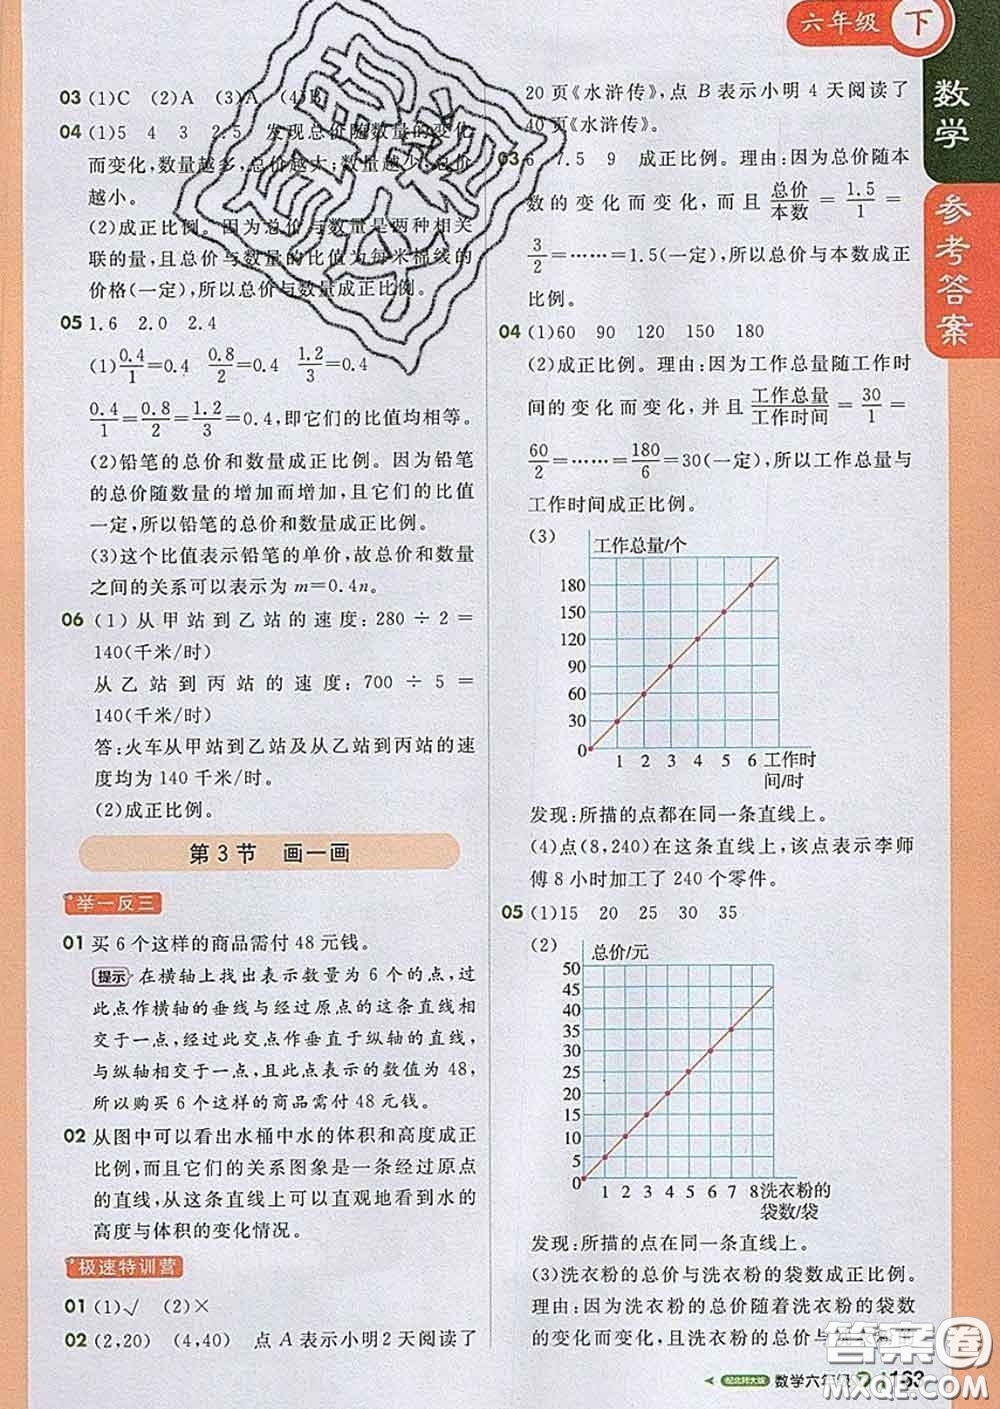 六年级 下
数学
参考答案
03 (1)C (2)A (3)A (4)B
04 (1)5 4 3 2.5 发现总价随数量的变化
而变化,数量越多,总价越大;数量越少,总价
越小。
(2)成正比例。因为总价与数量是两种相关
联的量,且总价与数量的比值为每米棉线的
价格(一定),所以总价与数量成正比例。
05 1.6 2.0 2.4
(1)0.4/1=0.4 0.8/2=0.4 1.2/3=0.4
0.4/1=0.8/2=1.2/3=0.4,即它们的比值均相等。
(2)铅笔的总价和数量成正比例。因为铅笔
的总价随数量的增加而增加,且它们的比值
一定,所以铅笔的总价和数量成正比例。
(3)这个比值表示铅笔的单价,故总价和数量
之间的关系可以表示为 m=0.4n。
06 (1)从甲站到乙站的速度:280÷2=
140(千米/时)
从乙站到丙站的速度:700÷5=
140(千米/时)
答:火车从甲站到乙站及从乙站到丙站的速
度均为 140 千米/时。
(2)成正比例。
第3节 画一画
举一反三
01 买6个这样的商品需付48元钱。
提示 在横轴上找出表示数量为6个的点,过
此点作横轴的垂线与经过原点的这条直线相
交于一点,经过此交点作垂直于纵轴的直线,
与纵轴相交于一点,且此点表示的数值为48,
所以购买6个这样的商品需付48元钱。
02 从图中可以看出水桶中水的体积和高度成正
比例,而且它们的关系图象是一条经过原点
的直线,从这条直线上可以直观地看到水的
高度与体积的变化情况。
极速特训营
01 (1)√ (2)×
02 (2,20) (4,40) 点A表示小明2天阅读了
20页《水浒传》,点B表示小明4天阅读了
40页《水浒传》。
03 6 7.5 9 成正比例。理由:因为总价随本
数的变化而变化,而且总价/本数=1.5/1=
3/2=……=1.5(一定),所以总价与本数成正
比例。
04 (1)60 90 120 150 180
(2)成正比例。理由:因为工作总量随工作时
间的变化而变化,并且工作总量/工作时间=30/1=
60/2=……=180/6=30(一定),所以工作总量与
工作时间成正比例。
(3)
工作总量/个
180
150
120
90
60
30
0
1 2 3 4 5 6 工作时
间/时
发现:所描的点都在同一条直线上。
(4)点(8,240)在这条直线上,该点表示李师
傅8小时加工了240个零件。
05 (1)15 20 25 30 35
(2)
总价/元
50
45
40
35
30
25
20
15
10
5
0
1 2 3 4 5 6 7 8 洗衣粉的
袋数/袋
发现:所描的点在同一条直线上。
(3)洗衣粉的总价与洗衣粉的袋数成正比例。
理由:因为洗衣粉的总价随着洗衣粉的袋数
的变化而变化,且洗衣粉的总价与洗衣粉
配北师大版 数学六年级
163
答案圈
MXQE.COM